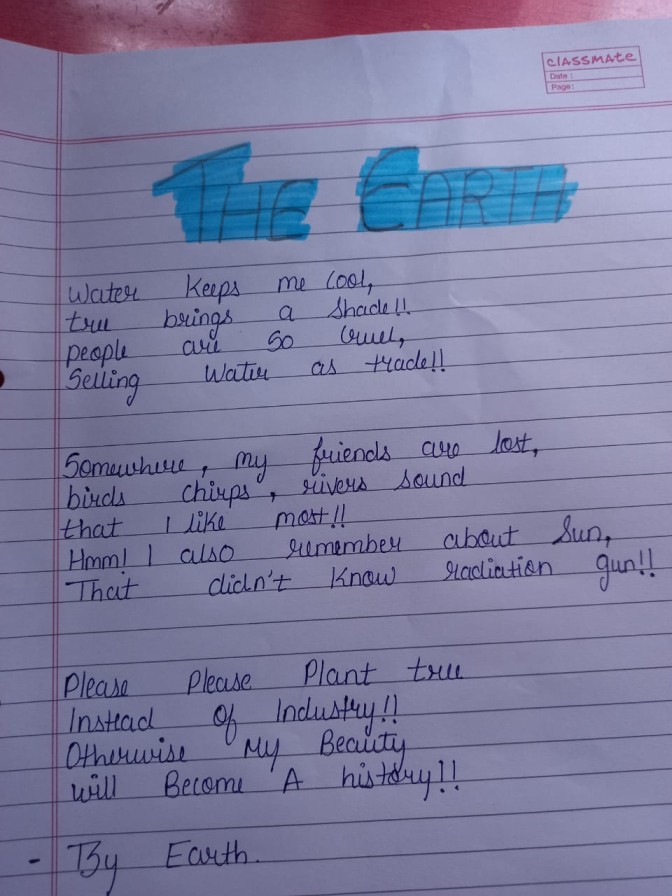 classmate
Date :
Page :
THE EARTH
Water Keeps me Cool,
tree brings a shade!!
people are so Cruel,
Selling Water as trade!!
Somewhere, my friends are lost,
birds chirps, rivers sound
that I like most!!
Hmm! I also remember about Sun,
That didn't Know radiation gun!!
Please Please Plant tree
Instead Of Industry!!
Otherwise My Beauty
will Become A history!!
- By Earth.